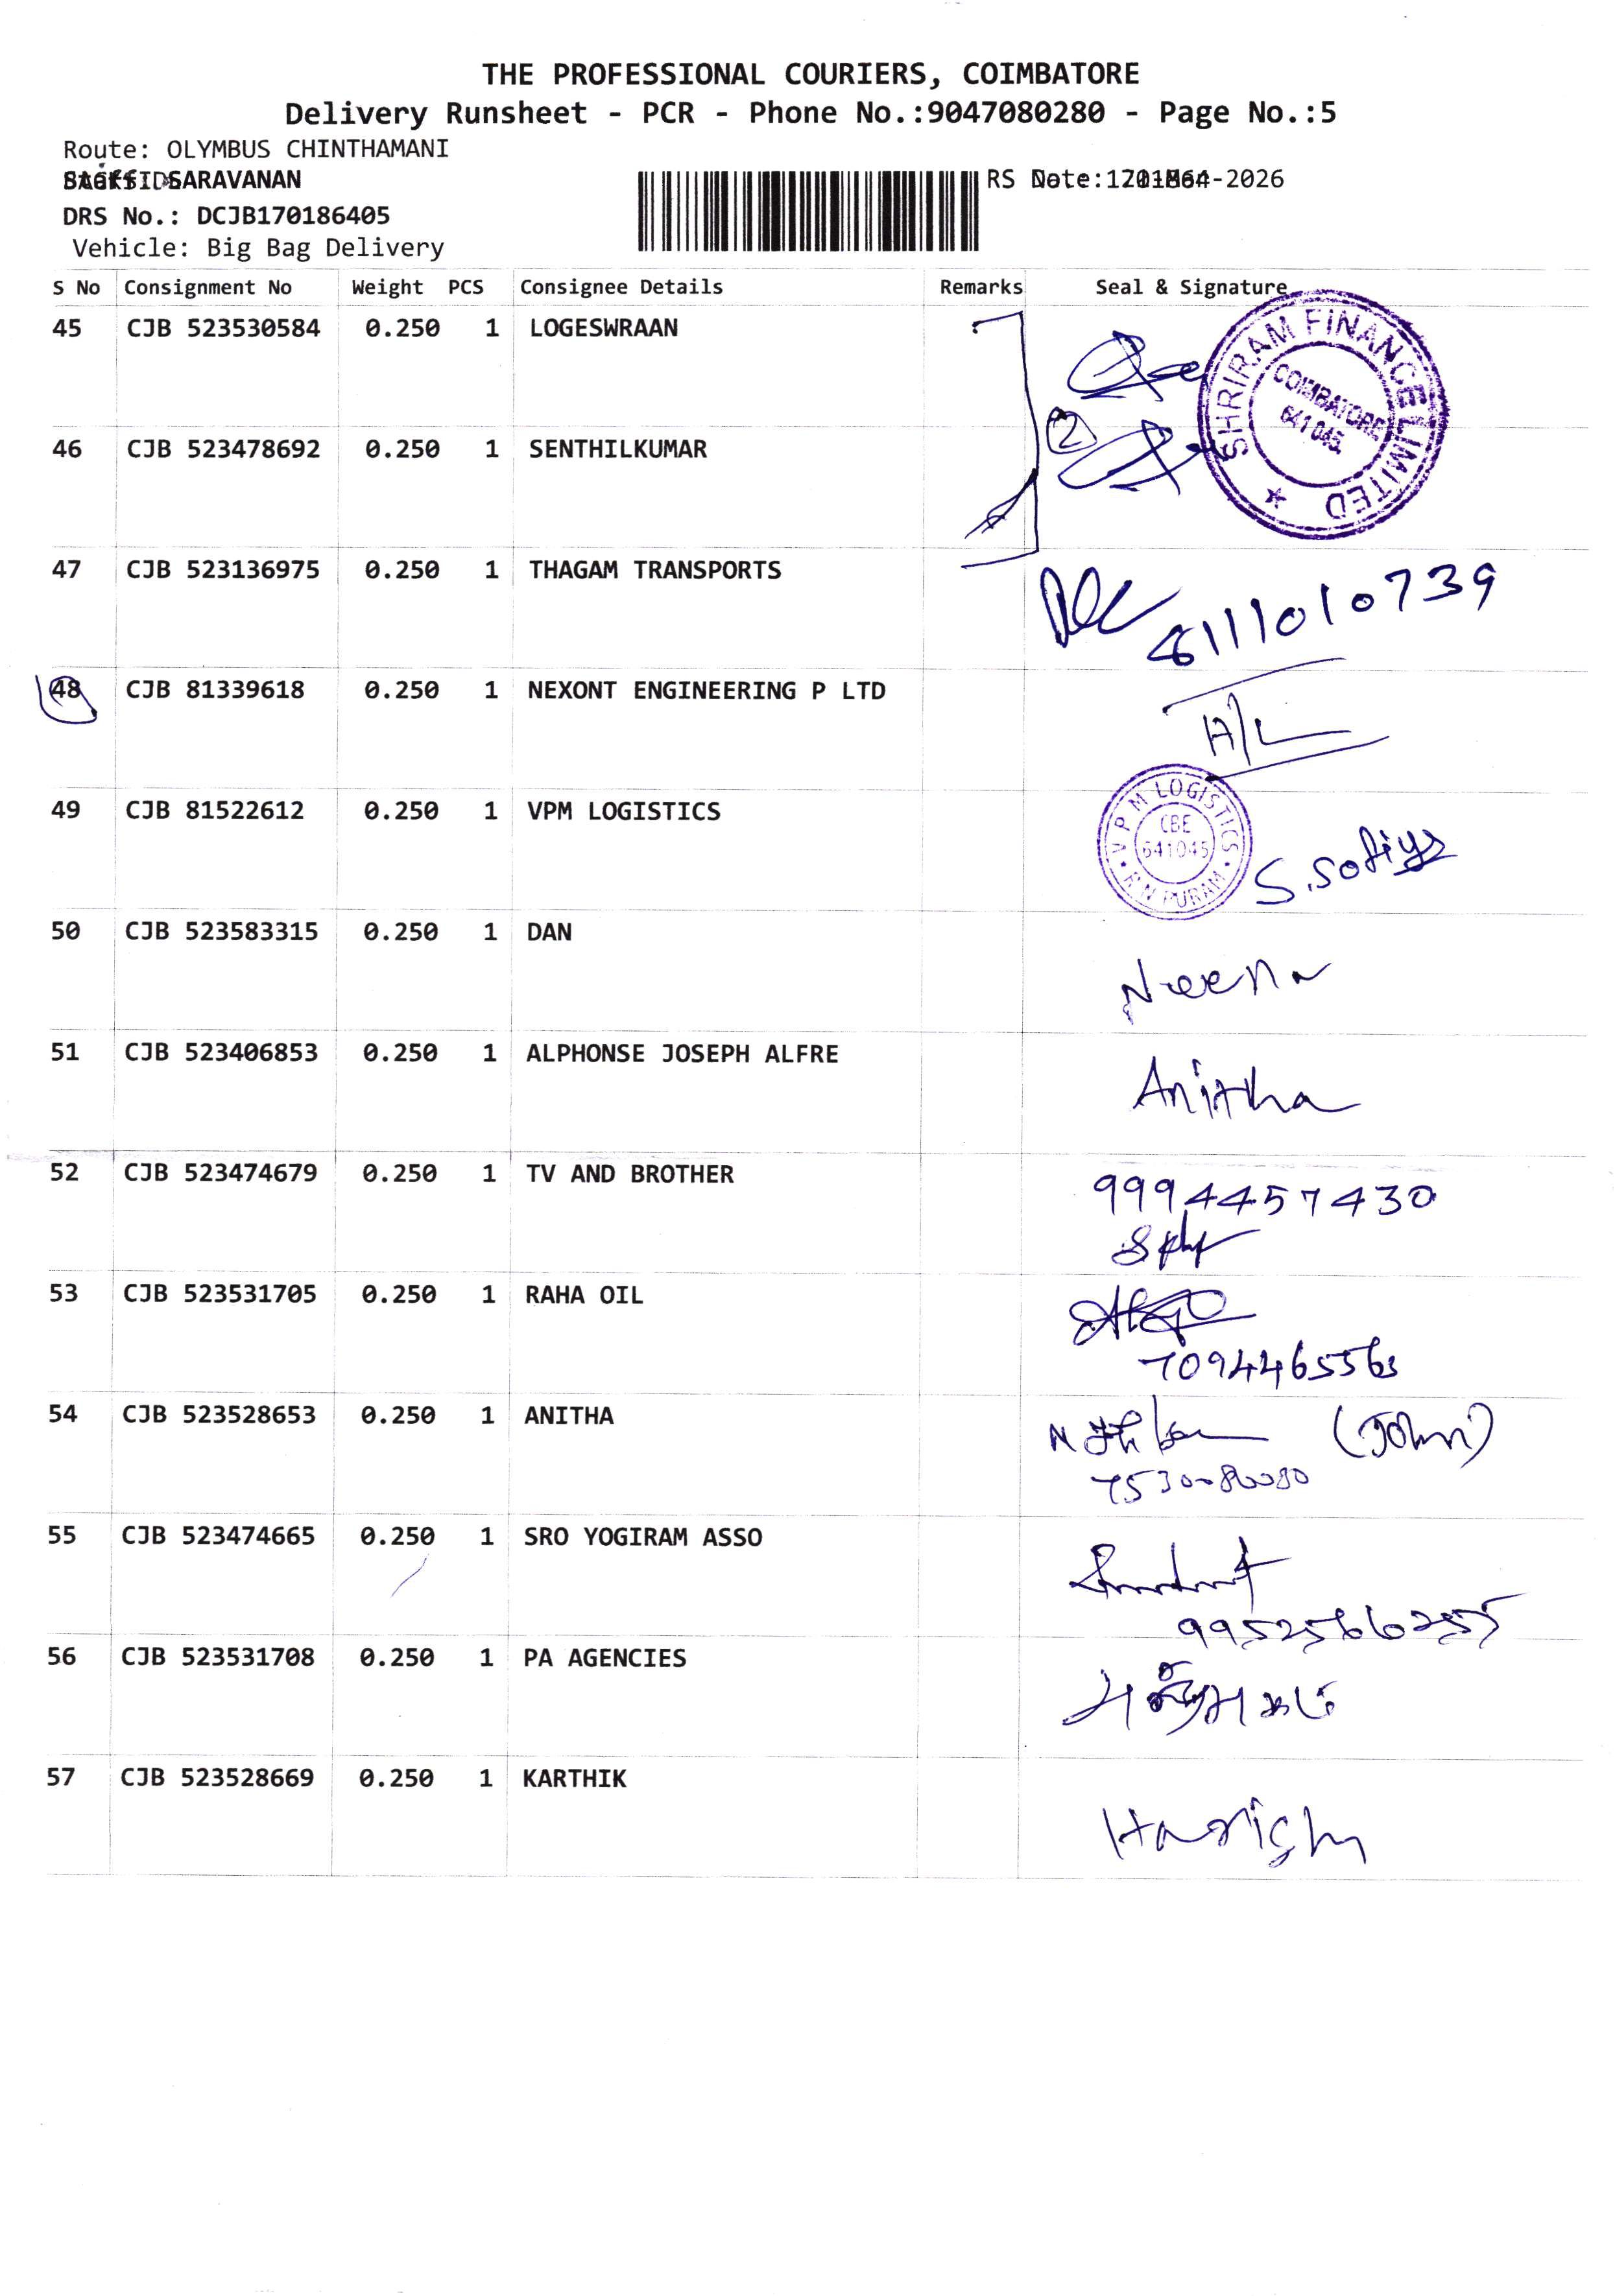 THE PROFESSIONAL COURIERS, COIMBATORE
Delivery Runsheet - PCR - Phone No.:9047080280 - Page No.:5
Route: OLYMBUS CHINTHAMANI
SARAVANAN
RS
-2026
DRS No.: DCJB170186405
Vehicle: Big Bag Delivery
S No Consignment No Weight PCS Consignee Details Remarks Seal & Signature
45 CJB 523530584 0.250 1 LOGESWRAAN
SHRIRAM FINANCE LIMITED
COIMBATORE
641 045
2
46 CJB 523478692 0.250 1 SENTHILKUMAR
47 CJB 523136975 0.250 1 THAGAM TRANSPORTS
48 CJB 81339618 0.250 1 NEXONT ENGINEERING P LTD
A/L
49 CJB 81522612 0.250 1 VPM LOGISTICS
VPM LOGISTICS
CBE
641045
R N PURAM
S.Sofiya
50 CJB 523583315 0.250 1 DAN
51 CJB 523406853 0.250 1 ALPHONSE JOSEPH ALFRE
Anitha
52 CJB 523474679 0.250 1 TV AND BROTHER
9994457430
53 CJB 523531705 0.250 1 RAHA OIL
54 CJB 523528653 0.250 1 ANITHA
(John)
55 CJB 523474665 0.250 1 SRO YOGIRAM ASSO
56 CJB 523531708 0.250 1 PA AGENCIES
57 CJB 523528669 0.250 1 KARTHIK